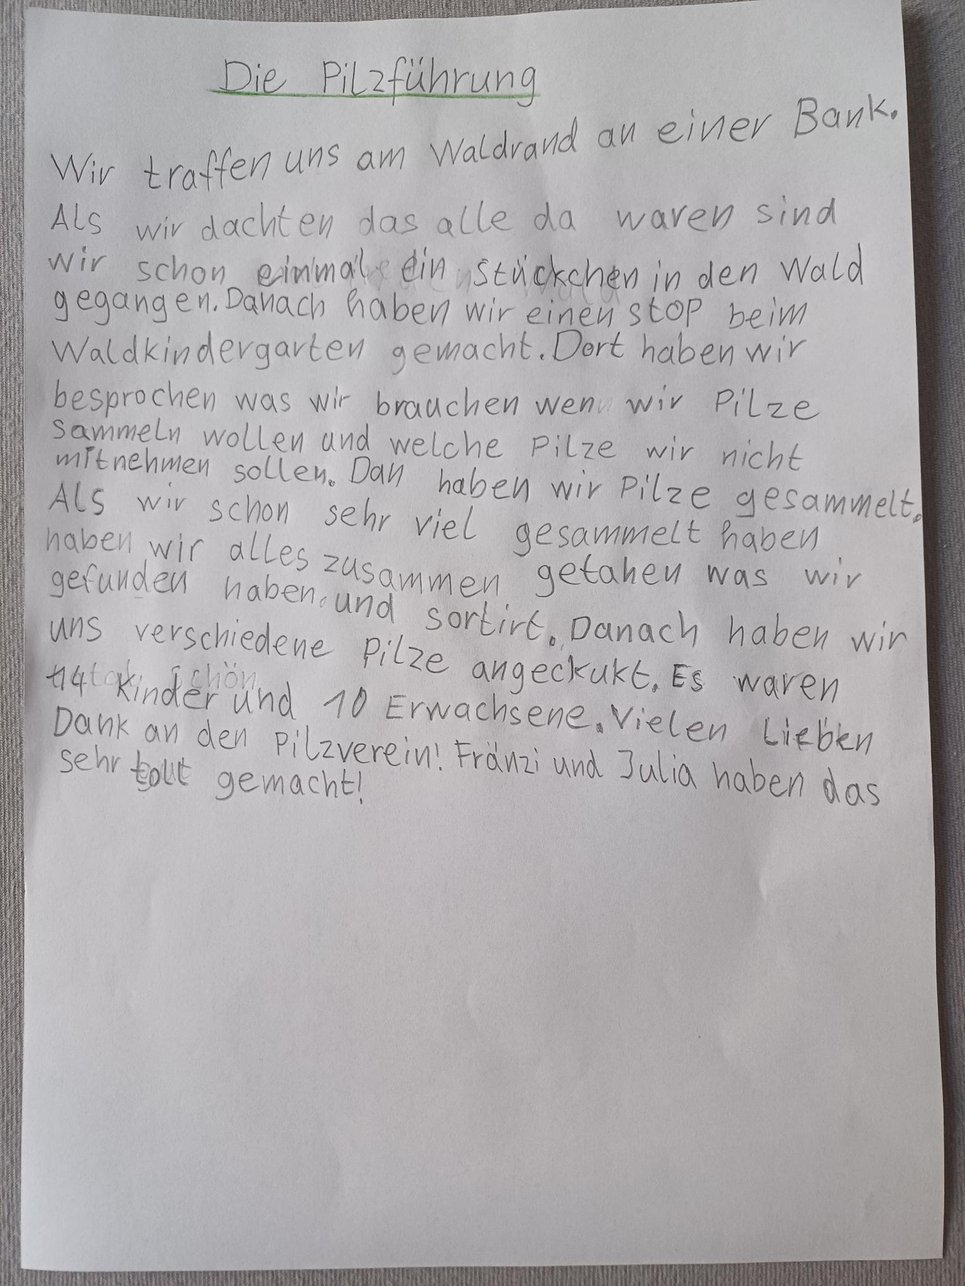 Die Pilzführung
Wir traffen uns am Waldrand an einer Bank.
Als wir dachten das alle da waren sind
wir schon einmal ein Stückchen in den Wald
gegangen. Danach haben wir einen stop beim
Waldkindergarten gemacht. Dort haben wir
besprochen was wir brauchen wen wir Pilze
sammeln wollen und welche Pilze wir nicht
mitnehmen sollen. Dan haben wir Pilze gesammelt.
Als wir schon sehr viel gesammelt haben
haben wir alles zusammen getahen was wir
gefunden haben und sortirt. Danach haben wir
uns verschiedene Pilze angeckukt. Es waren
14 Kinder und 10 Erwachsene. Vielen Lieben
Dank an den Pilzverein! Fränzi und Julia haben das
sehr toll gemacht!